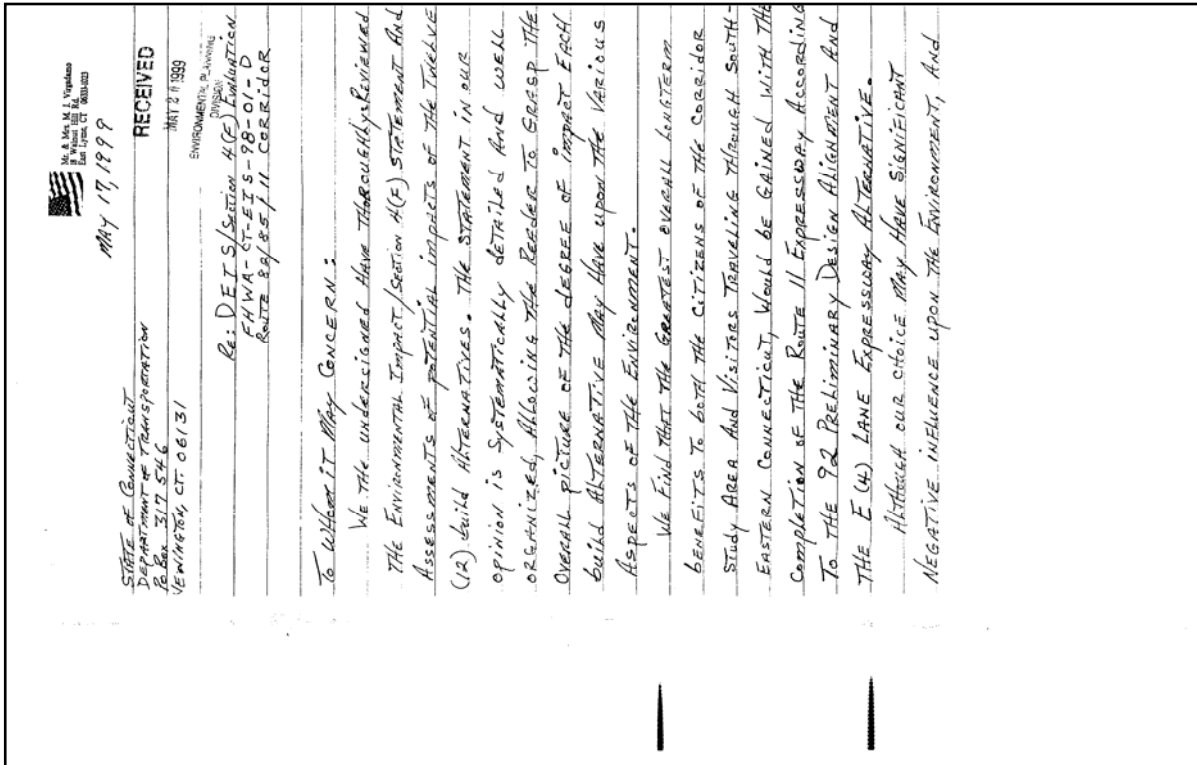 Mr. & Mrs. M. J. Virgadamo
18 Walnut Hill Rd.
East Lyme, CT 06333-1023
MAY 17, 1999
RECEIVED
MAY 20 1999
ENVIRONMENTAL PLANNING
DIVISION
STATE OF CONNECTICUT
DEPARTMENT OF TRANSPORTATION
PO BOX 317546
NEWINGTON, CT. 06131
Re: DEIS/Section 4(F) Evaluation
FHWA-CT-EIS-98-01-D
Route 82/85/11 CORRIDOR
To Whom it May Concern:
We the undersigned Have Thoroughly Reviewed
The Environmental Impact/Section 4(F) Statement And
Assessments of potential impacts of the Twelve
(12) build Alternatives. The Statement in our
opinion is systematically detailed and well
organized, Allowing the Reeder to Grasp the
Overall picture of the degree of impact Each
build Alternative May Have upon the Various
Aspects of the Environment.
We Find that the Greatest overall Longterm
benefits to both the Citizens of the Corridor
Study Area And Visitors Traveling through South-
eastern Connecticut, Would be Gained With the
Completion of the Route 11 Expressway According
To the 92 Preliminary Design Alignment And
The E (4) Lane Expressway Alternative.
Although our choice May Have Significant
Negative influence upon the Environment, And